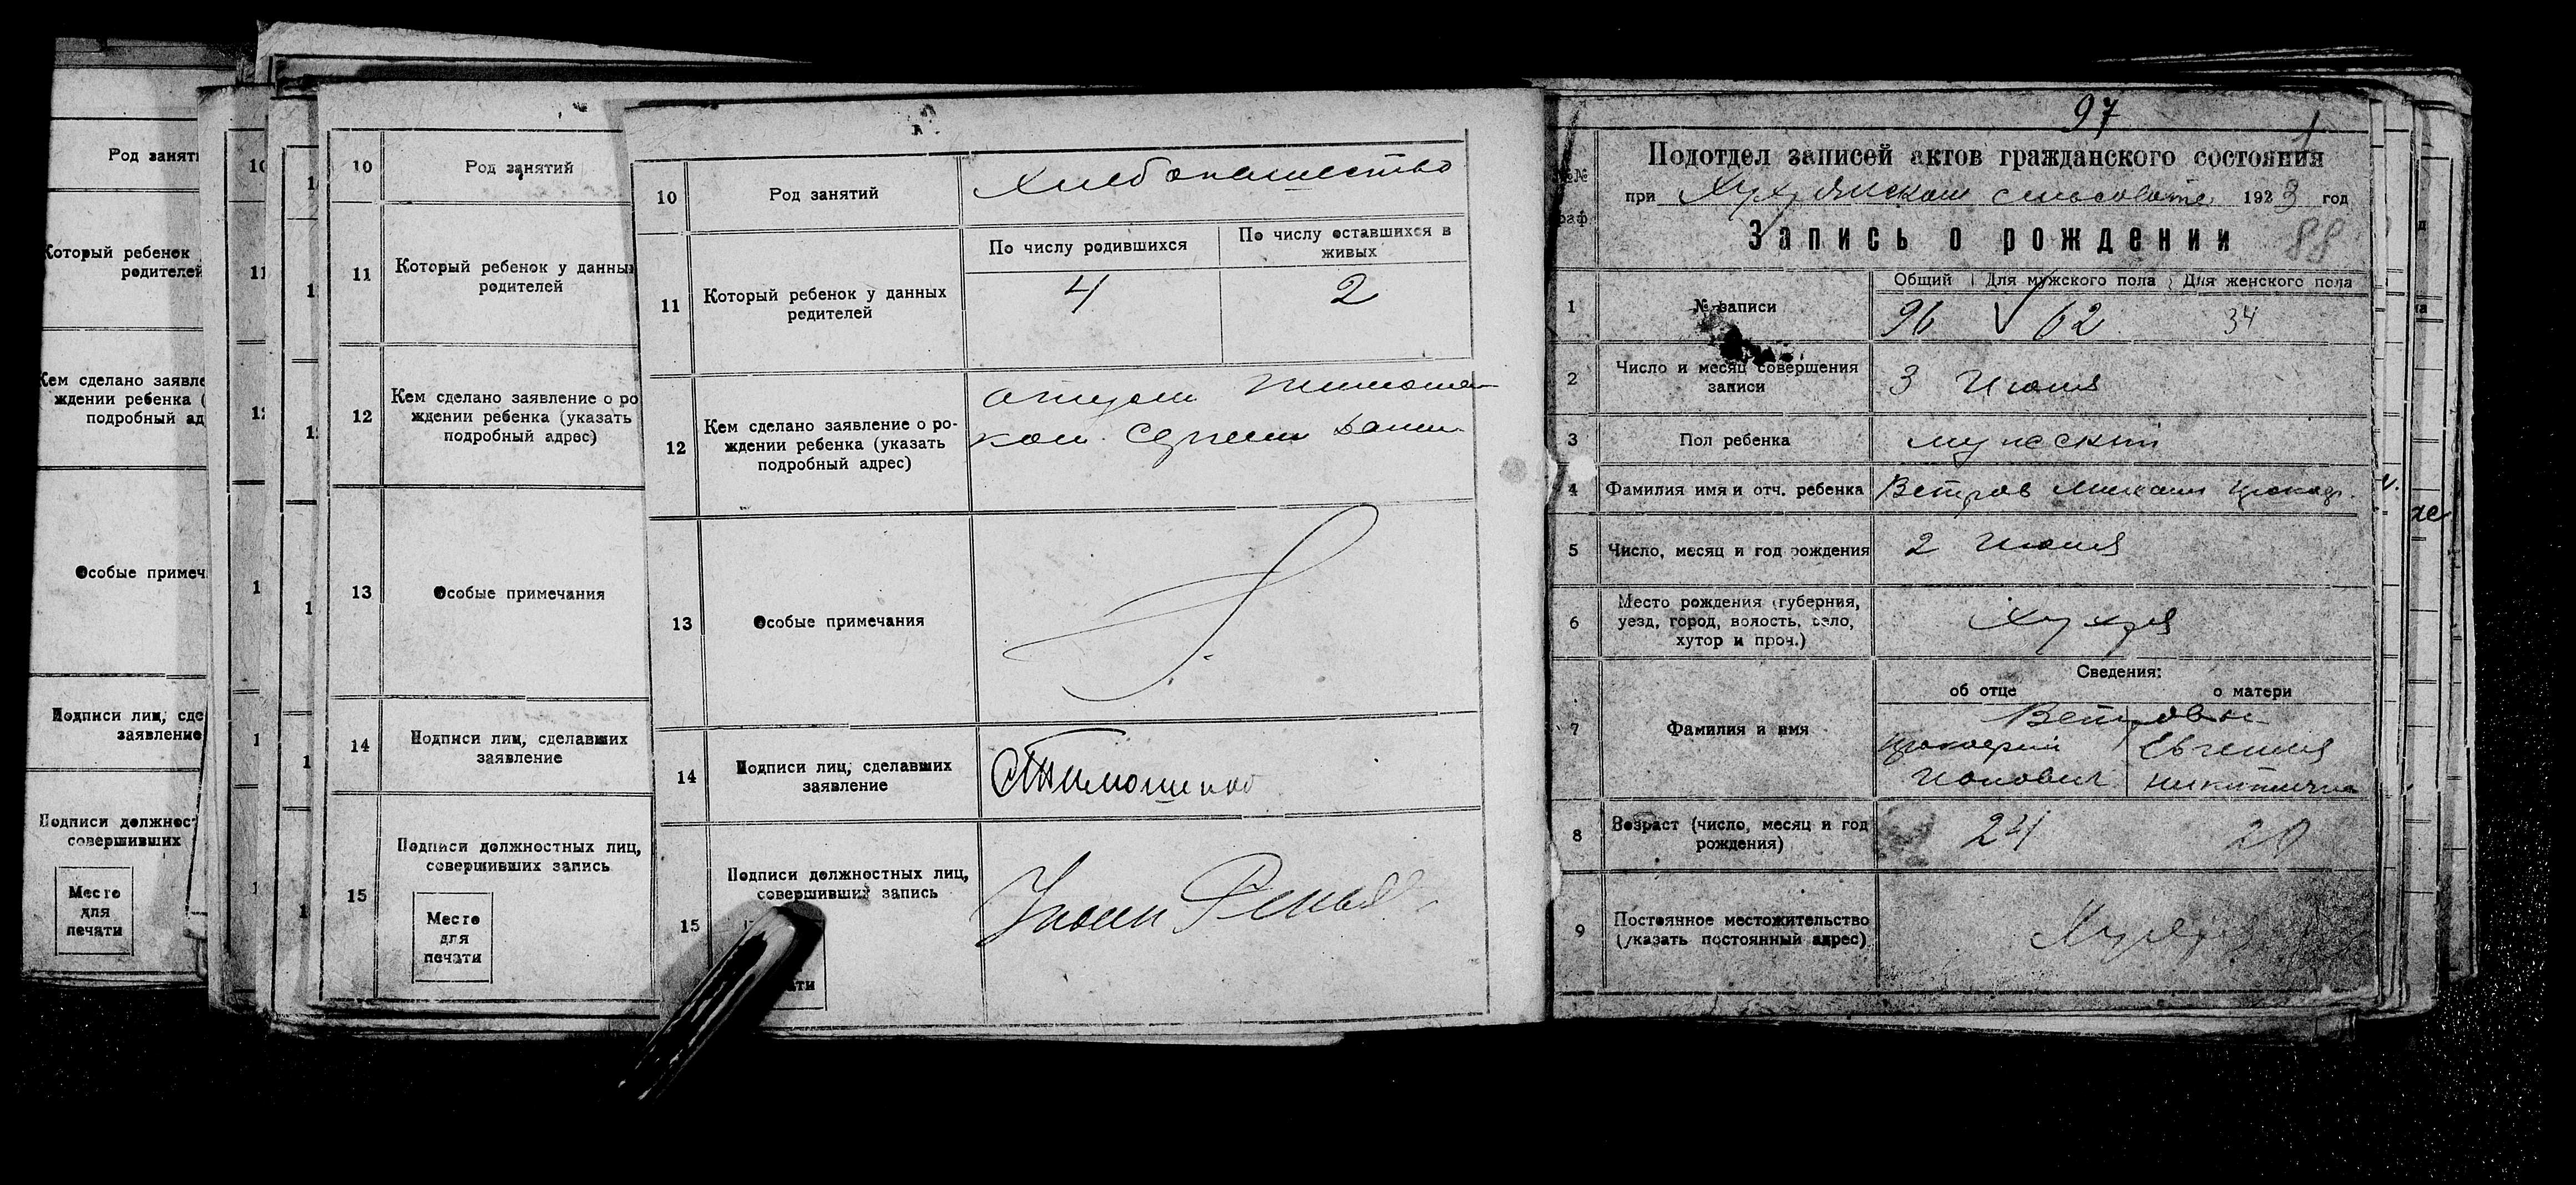 Род занят
Который ребенок
родителей
Кем сделано заявле
ждении ребенка (
подробный ад
Особые примеч
Подписи лиц, сде
заявление
Подписи должнос
совершивших
Место
для
печати
10
11
1
1
1
10 Род занятий
11 Который ребенок у данны
родителей
12 Кем сделано заявление о ро
ждении ребенка (указать
подробный адрес)
13 Особые примечания
14 Подписи лиц, сделавших
заявление
15 Подписи должностных лиц,
совершивших запись
Место
для
печати
10 Род занятий Хлебопашество
11 Который ребенок у данных
родителей
По числу родившихся По числу оставшихся в
живых
4 2
12 Кем сделано заявление о ро-
ждении ребенка (указать
подробный адрес)
отцом Тимошен-
ком Сергеем Дани
13 Особые примечания
14 Подписи лиц, сделавших
заявление
Тимошенко
15 Подписи должностных лиц,
совершивших запись
ати
97
Подотдел записей актов гражданского состояния
при 1923 год
Запись о рождении 88
№№
раф
Общий Для мужского пола Для женского пола
1 № записи 96 V 62 34
2 Число и месяц совершения
записи
3 Июня
3 Пол ребенка мужеский
4 Фамилия имя и отч. ребенка Ветров Михаил Прокоф.
5 Число, месяц и год рождения 2 Июня
6 Место рождения (губерния,
уезд, город, волость, село,
хутор и проч.)
Хухря
Сведения:
об отце о матери
7 Фамилия и имя
Ветровы
Прокофий Евгения
Ионович Никитична
8 Возраст (число, месяц и год
рождения)
24 20
9 Постоянное местожительство
(указать постоянный адрес)
Хухря